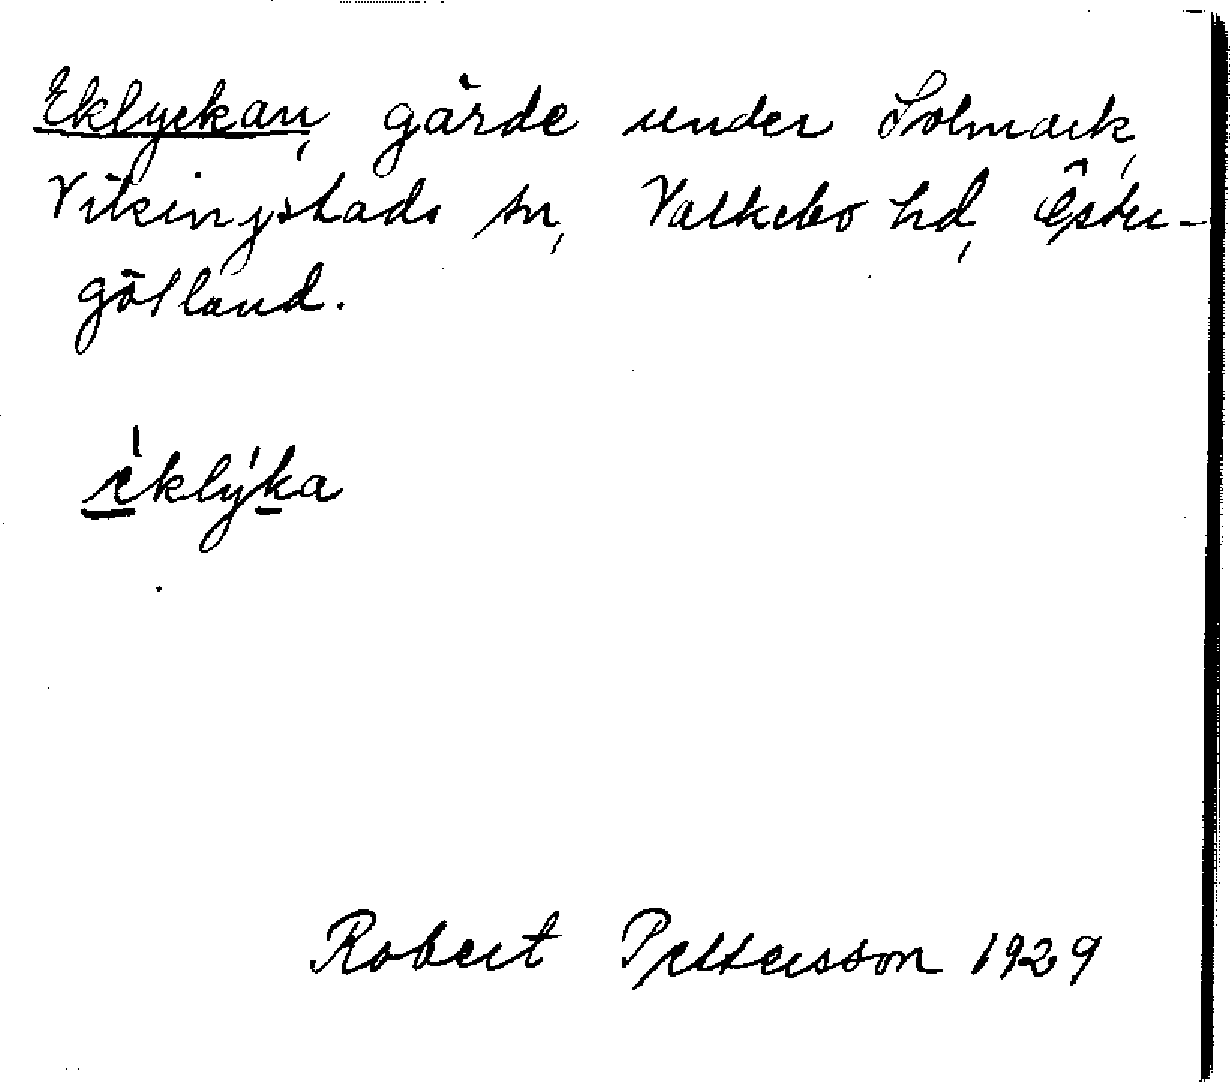 Eklyckan, gärde under Solmark,
Vikingstads sn, Valkebo hd, Öster-
götland.
èklý'ka
Robert Pettersson 1929